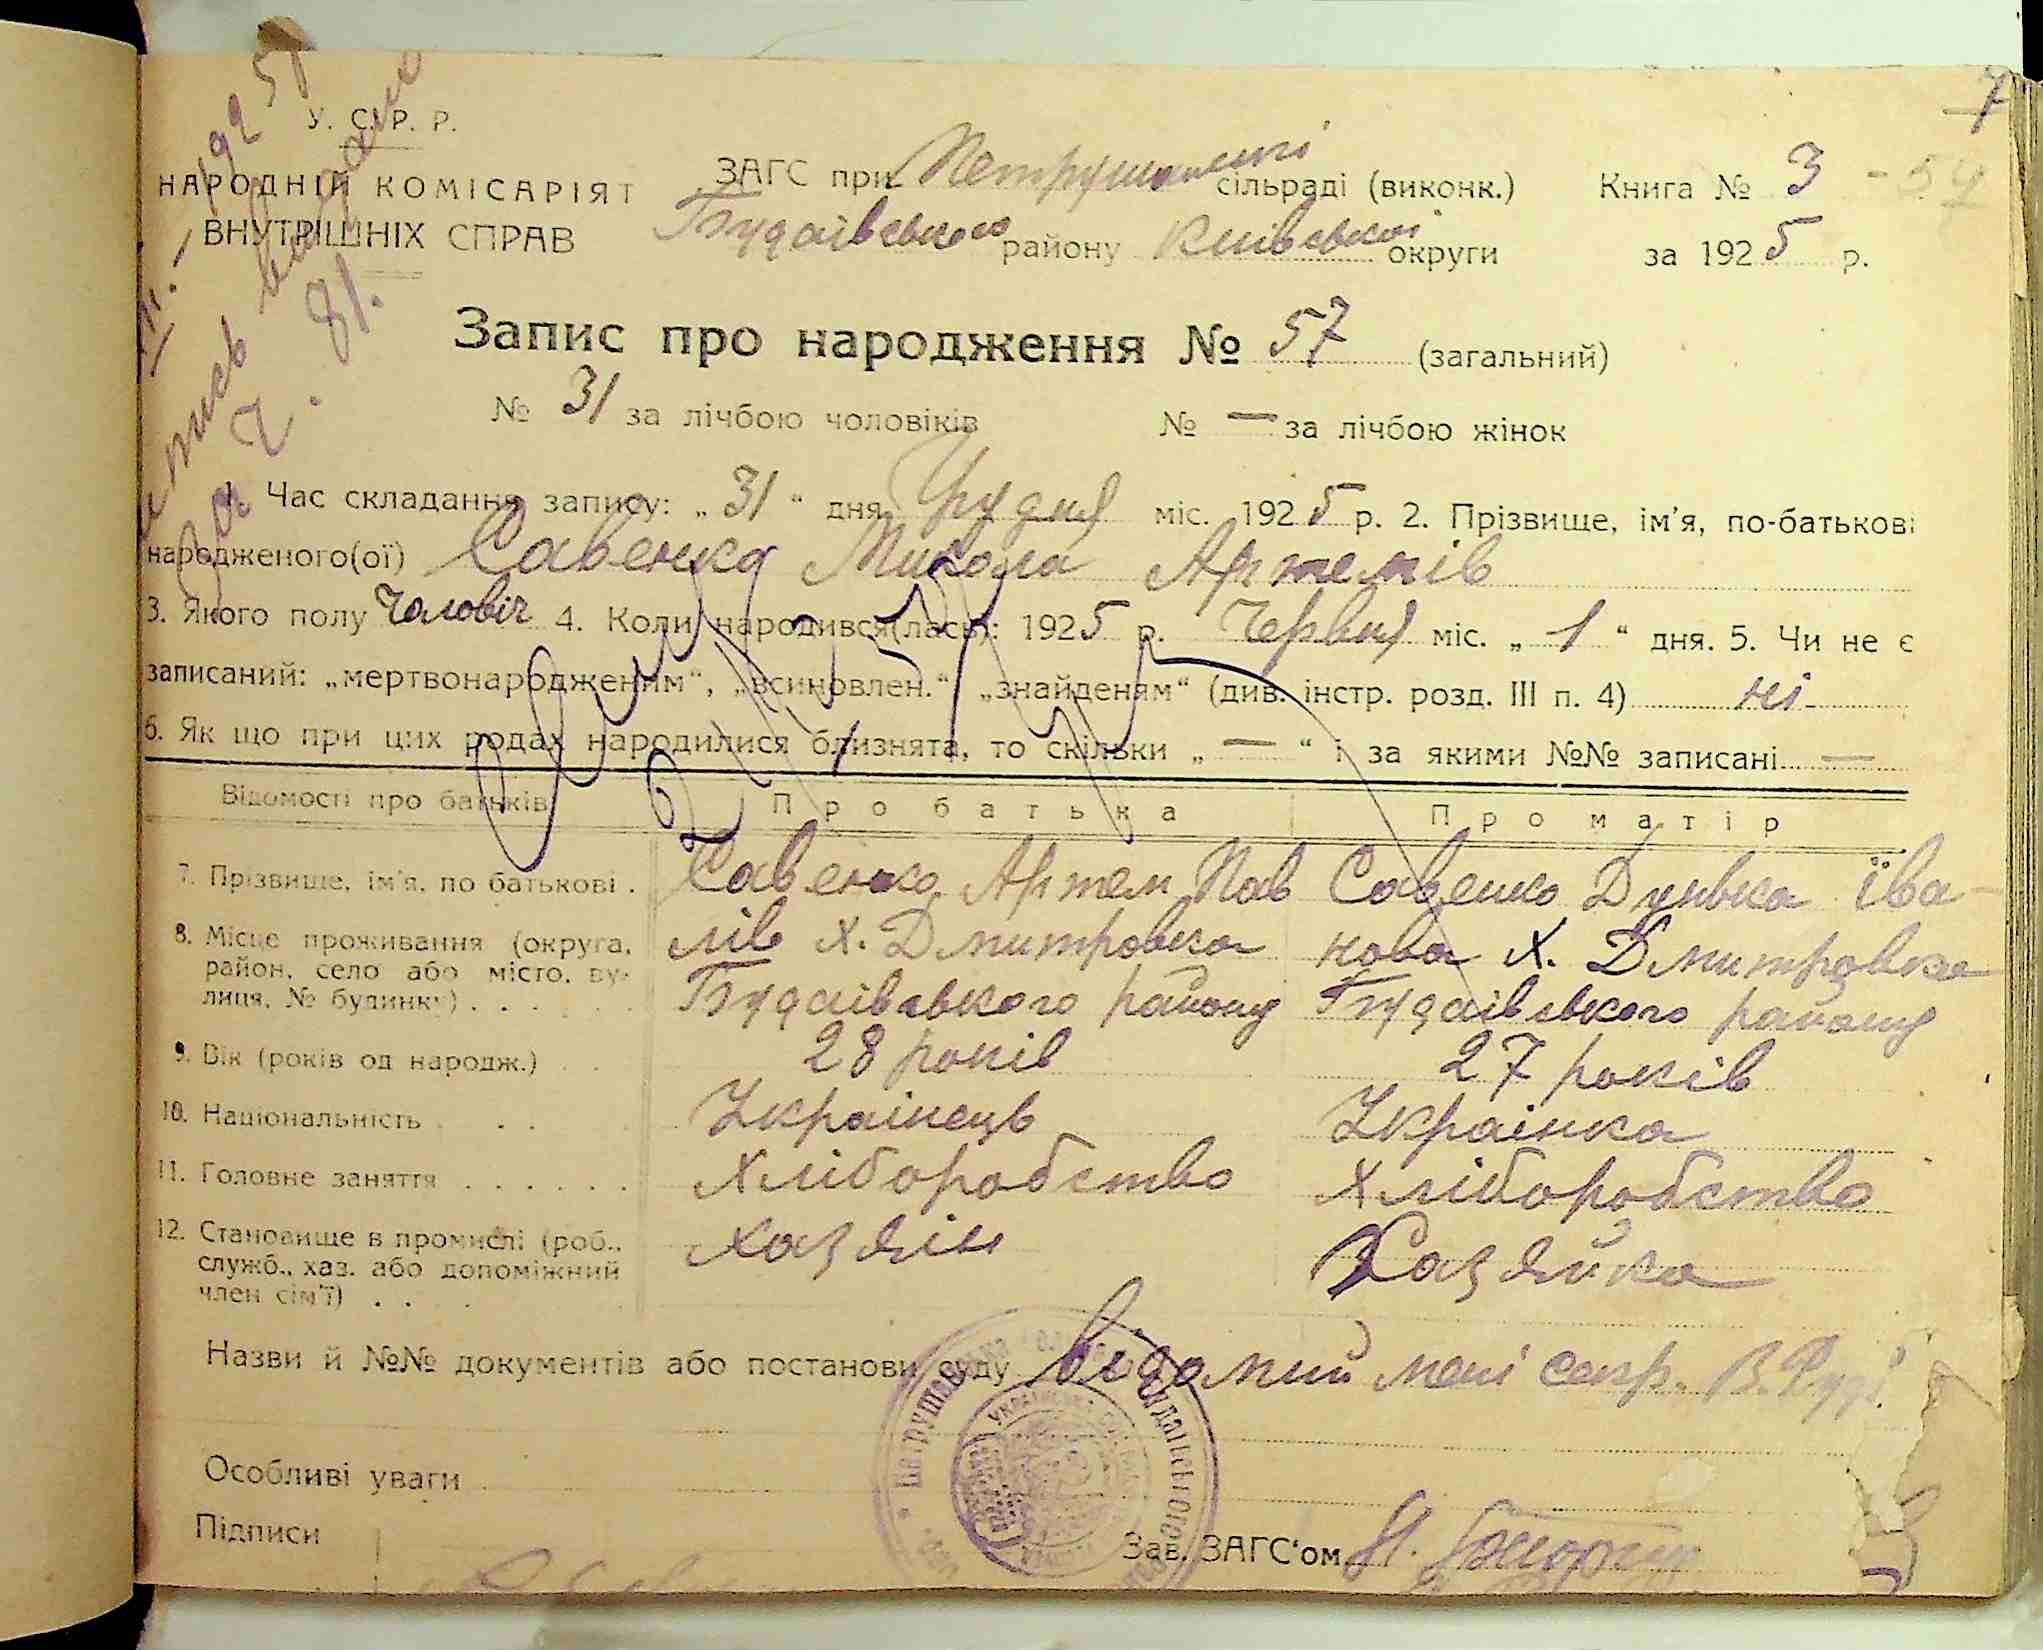 7
У. С. Р. Р.
НАРОДНІЙ КОМІСАРІЯТ
ВНУТРІШНІХ СПРАВ
ЗАГС при Петрушанські сільраді (виконк.)
Будаівського району Київської округи
Книга № 3 - 57
за 1925 р.
Запис про народження № 57 (загальний)
№ 31 за лічбою чоловіків № — за лічбою жінок
1. Час складання запису: „31“ дня Грудня міс. 1925 р. 2. Прізвище, ім'я, по-батькові
народженого(ої) Савенко Микола Артемів
3. Якого полу Чоловіч 4. Коли народився(лась): 1925 р. Червня міс. „1“ дня. 5. Чи не є
записаний: „мертвонародженим“, „всиновлен.“ „знайденям“ (див. інстр. розд. III п. 4) ні
6. Як що при цих родах народилися близнята, то скільки „—“ і за якими №№ записані —
Відомості про батьків Про батька Про матір
7. Прізвище, ім'я, по батькові . Савенко Артем Пав Савенко Дунька Іва-
8. Місце проживання (округа, лів х. Дмитровка нова Х. Дмитровка
район, село або місто, ву-
лиця, № будинку) . . . . . Будаівського району Будаівського району
9. Вік (років од народж.) . . 28 років 27 років
10. Національність . . . Украінець Украінка
11. Головне заняття . . . . . . Хліборобство Хліборобство
12. Становище в промислі (роб., Хазяін Хазяйка
служб., хаз. або допоміжний
член сім'ї) . .
Назви й №№ документів або постанови суду відомий мені секр. В.
Особливі уваги
Підписи
Зав. ЗАГС'ом